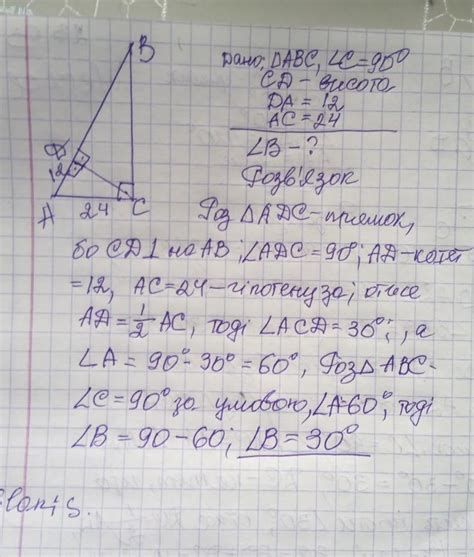 B
Дано: △ABC, ∠C=90°
CD – висота
DA = 12
AC = 24
∠B – ?
Розв'язок
D
12
A
24
C
Роз △ADC – прямок,
бо CD⊥ на AB; ∠ADC=90°; AD – катет
=12, AC=24 – гіпотенуза; отже
AD=1/2 AC, тоді ∠ACD=30°;, а
∠A = 90°-30°=60°, Роз△ ABC-
∠C=90° за умовою, ∠A=60°, тоді
∠B = 90-60; ∠B=30°